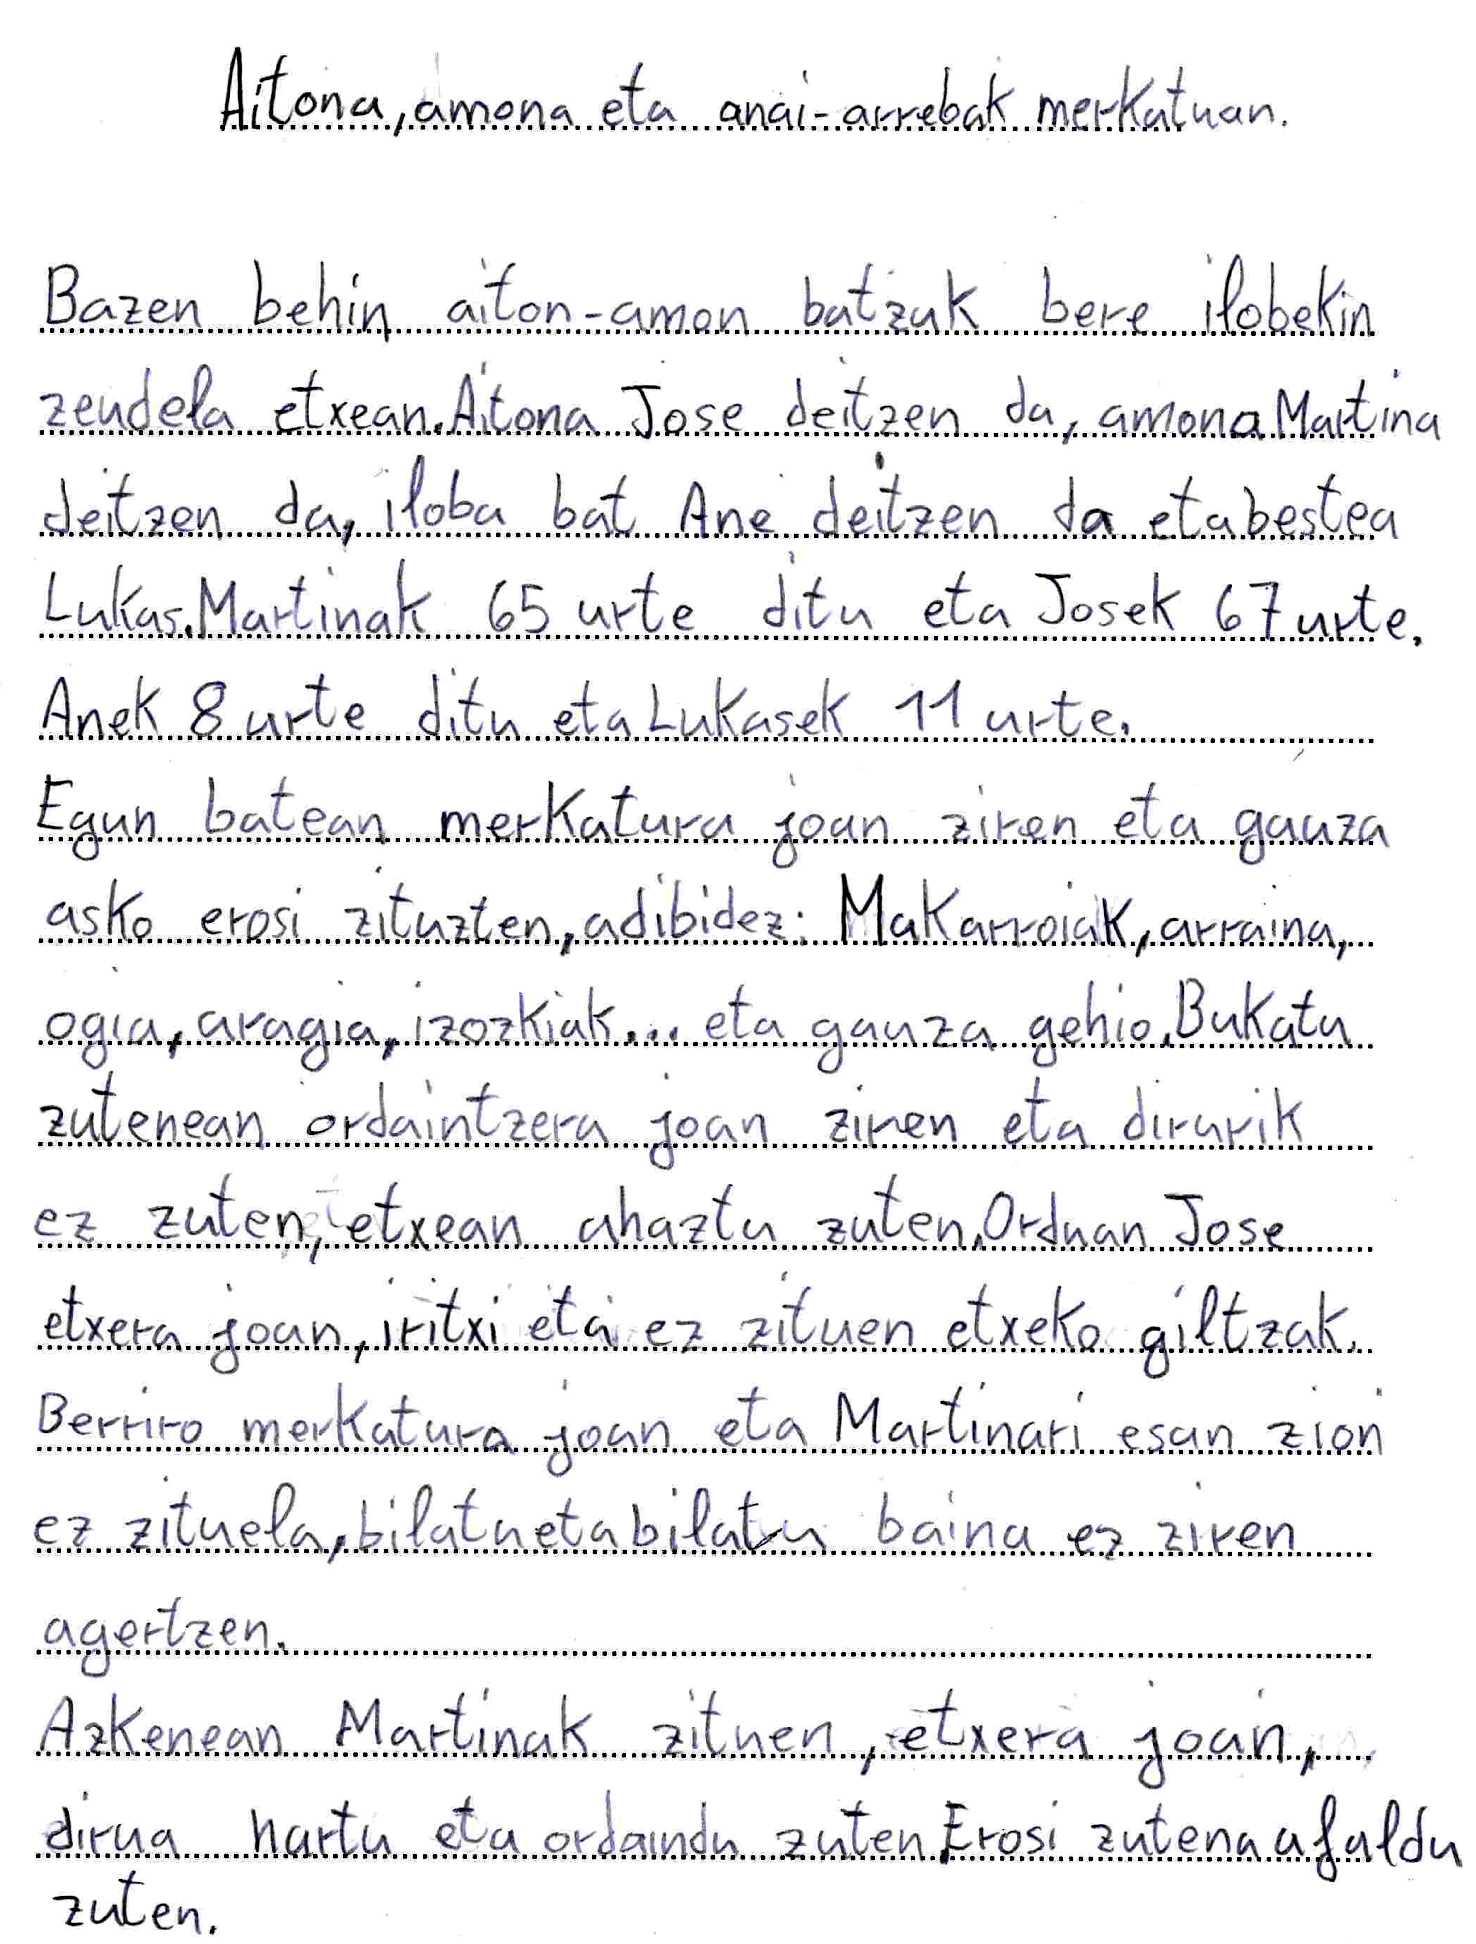 Aitona, amona eta anai-arrebak merkatuan.
Bazen behin aiton-amon batzuk bere ilobekin
zeudela etxean. Aitona Jose deitzen da, amona Martina
deitzen da, iloba bat Ane deitzen da eta bestea
Lukas. Martinak 65 urte ditu eta Josek 67 urte.
Anek 8 urte ditu eta Lukasek 11 urte.
Egun batean merkatura joan ziren eta gauza
asko erosi zituzten, adibidez: Makarroiak, arraina,
ogia, aragia, izozkiak... eta gauza gehio. Bukatu
zutenean ordaintzera joan ziren eta dirurik
ez zuten, etxean ahaztu zuten. Orduan Jose
etxera joan, iritxi eta ez zituen etxeko giltzak.
Berriro merkatura joan eta Martinari esan zion
ez zituela, bilatu eta bilatu baina ez ziren
agertzen.
Azkenean Martinak zituen, etxera joan,
dirua hartu eta ordaindu zuten. Erosi zutena afaldu
zuten.